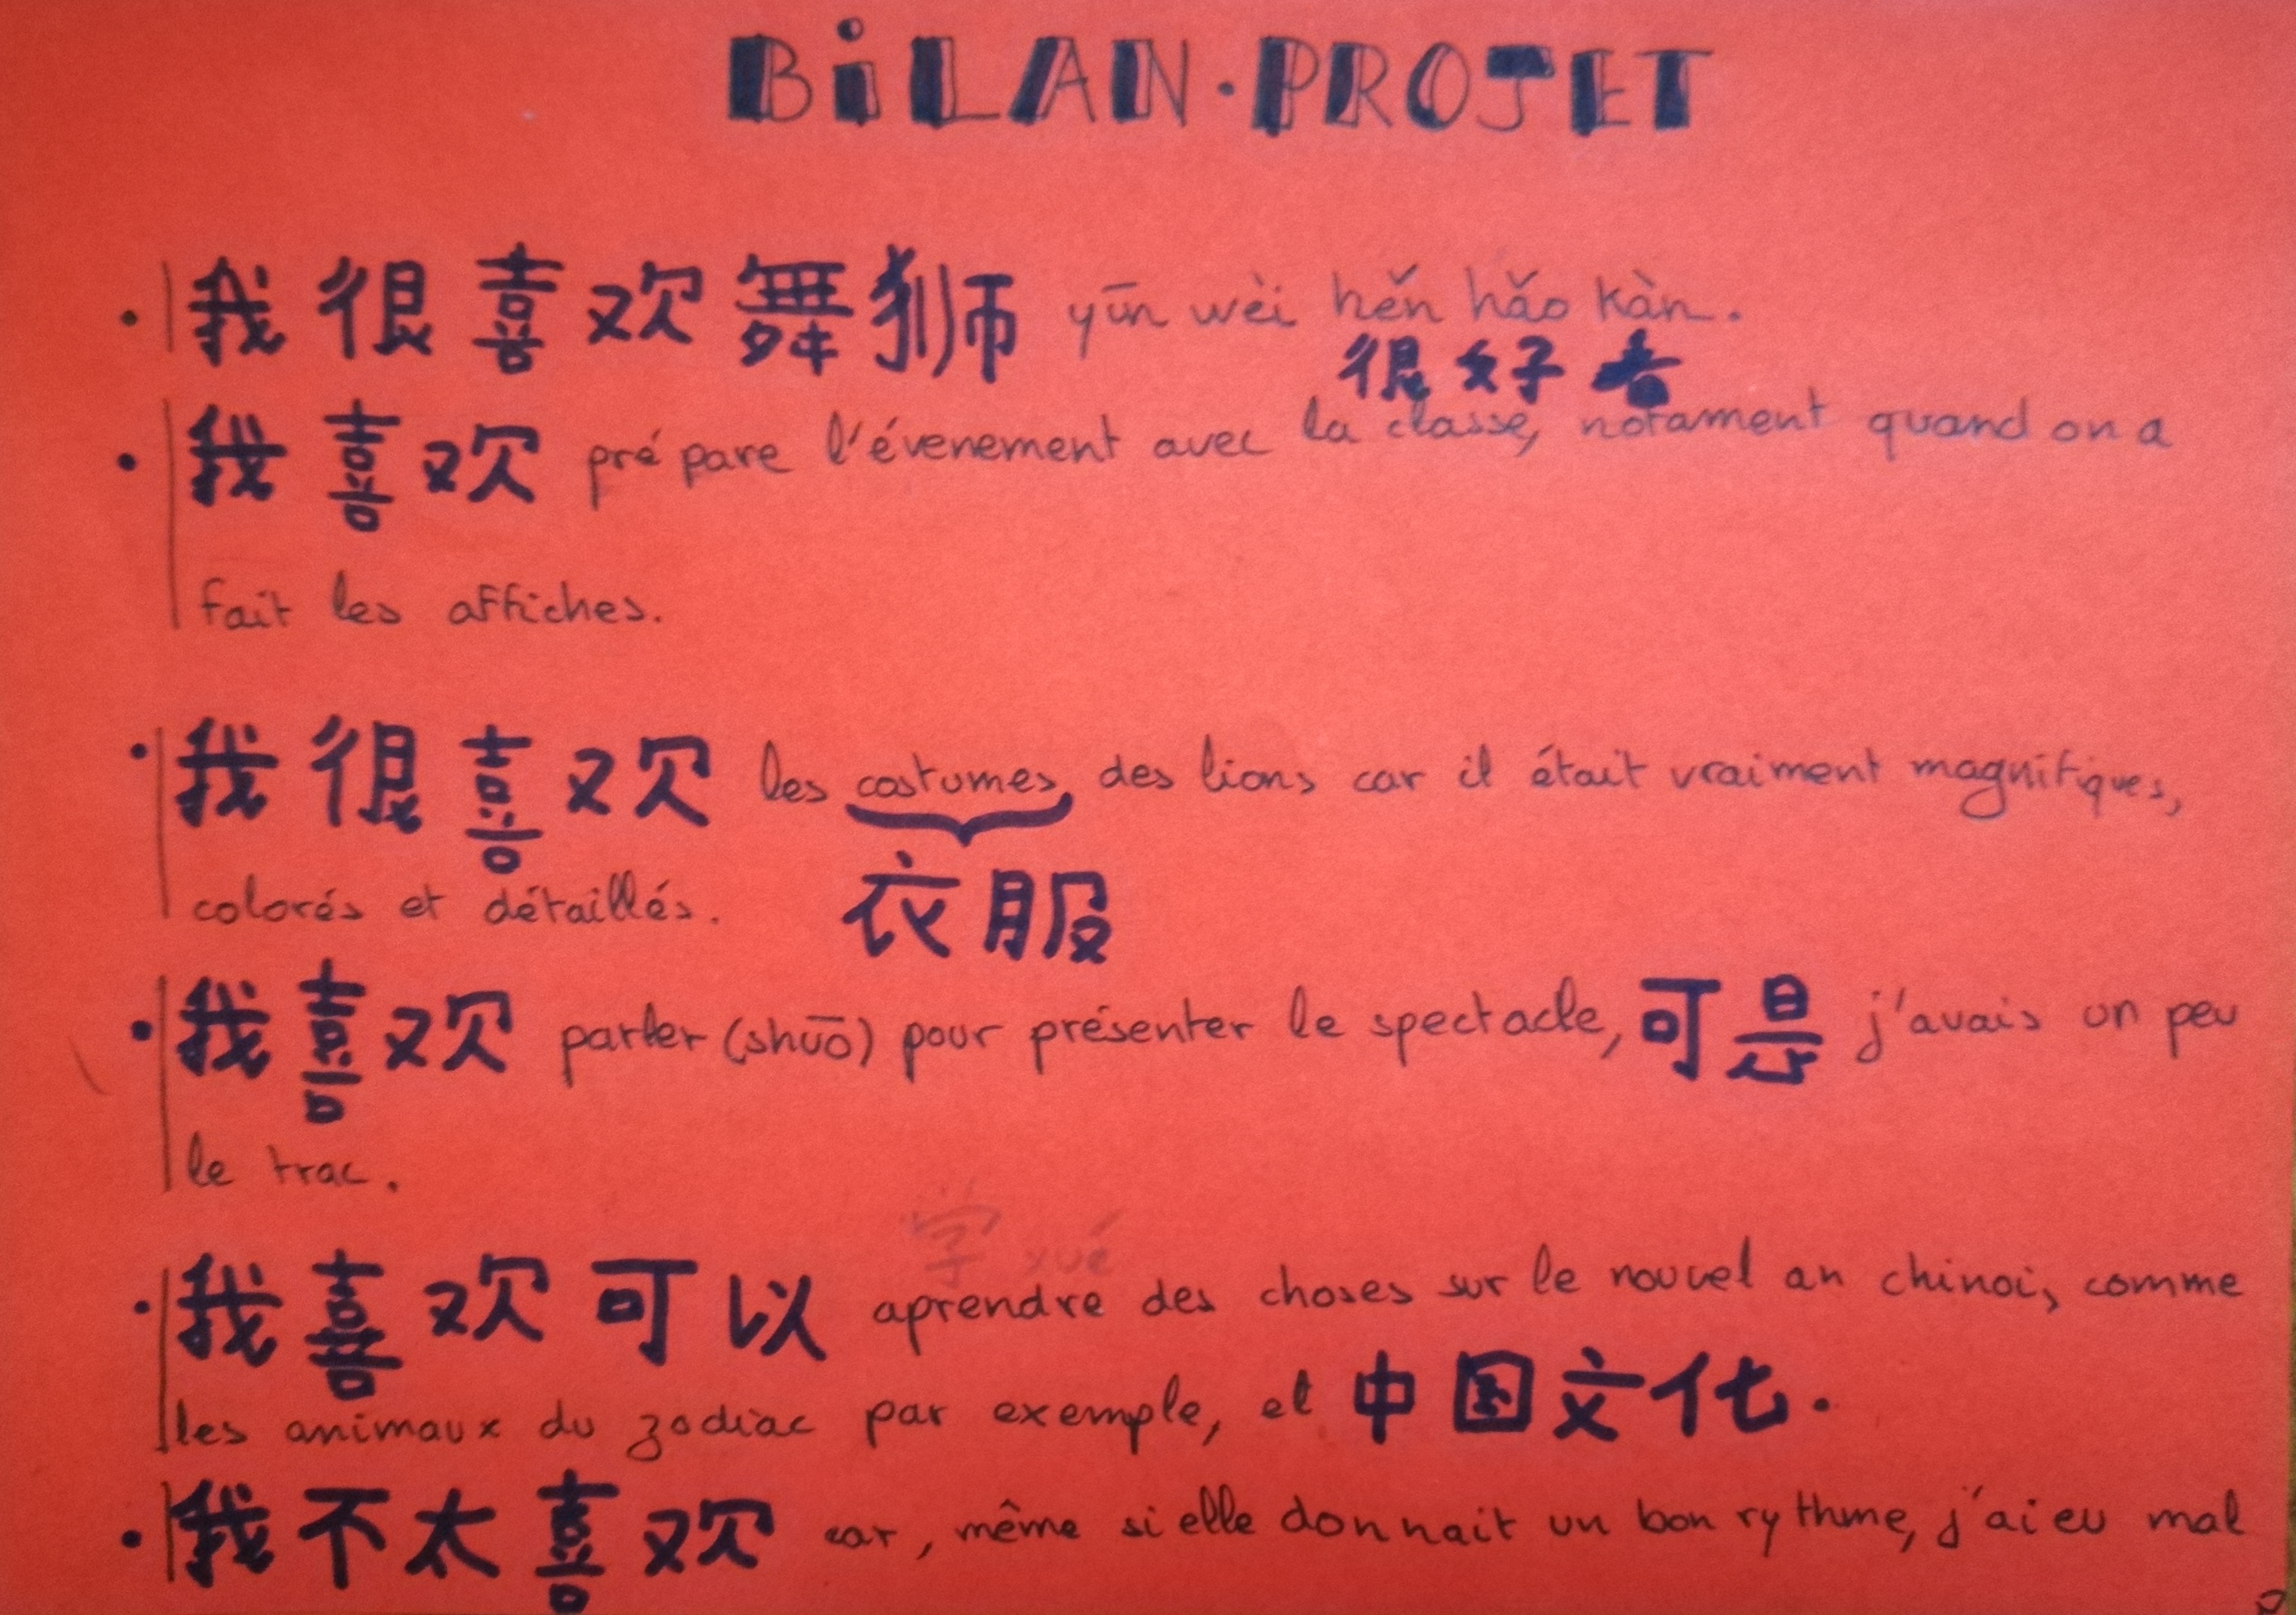 BiLAN·PROJET
• 我很喜欢舞狮 yīn wèi hěn hǎo kàn.
很好看
• 我喜欢 prépare l'évenement avec la classe, notament quand on a
fait les affiches.
• 我很喜欢 les costumes des lions car il était vraiment magnifiques,
colorés et détaillés.
衣服
• 我喜欢 parler (shuō) pour présenter le spectacle, 可是 j'avais un peu
le trac.
学 xué
• 我喜欢可以 aprendre des choses sur le nouvel an chinois, comme
les animaux du zodiac par exemple, et 中国文化.
• 我不太喜欢 car, même si elle donnait un bon rythme, j'ai eu mal